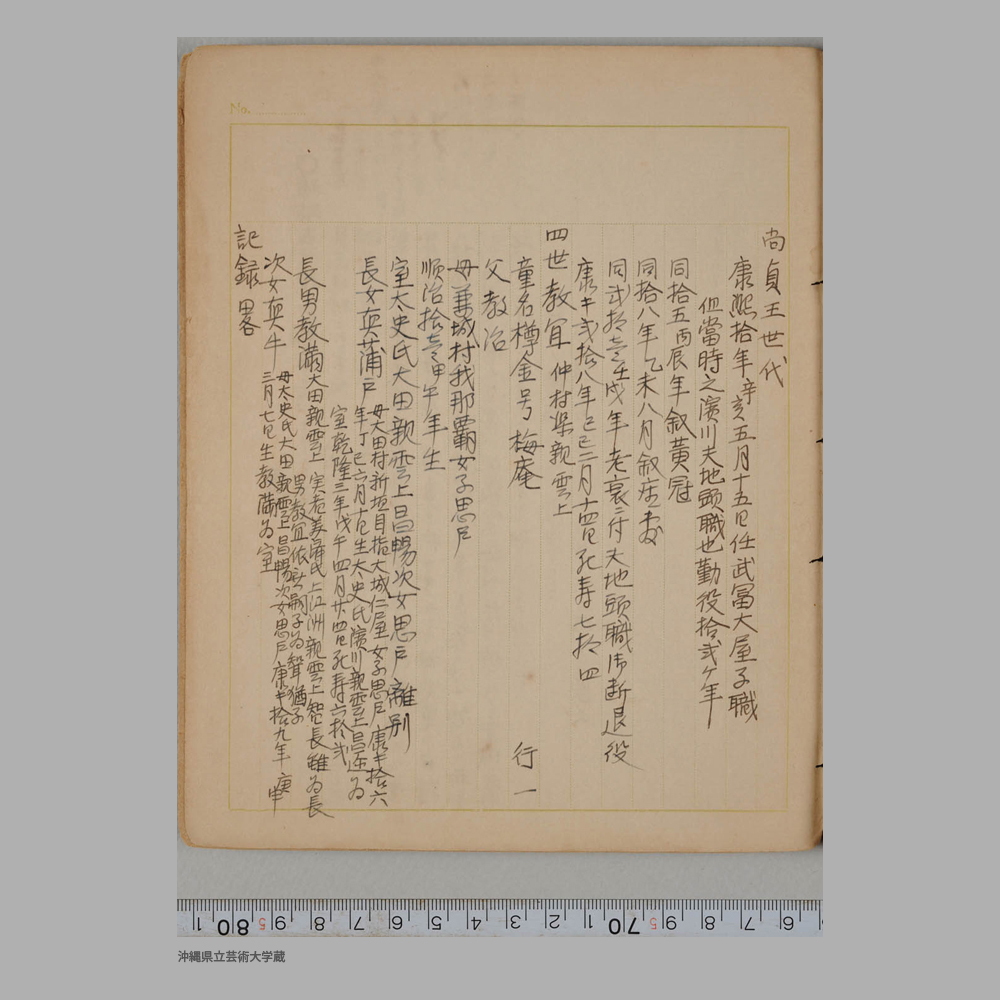 No.
尚貞王世代
康熙拾年辛亥五月十五日任武冨大屋子職
但當時之濱川夫地頭職也勤役拾弐ケ年
同拾五丙辰年叙黄冠
同拾八年乙未八月叙座敷
同弐拾壱壬戌年老衰ニ付夫地頭職御断退役
康熙弐拾八年己巳二月十四日死寿七拾四
四世教冝 仲村渠親雲上
童名樽金号梅庵 行一
父教治
母兼城村我那覇女子思戸
順治拾壱甲午年生
室太史氏大田親雲上昌暢次女思戸離別
長女真蒲戸 母大田村新垣目指大城仁屋女子思戸康熙拾六
年丁巳六月十日生太史氏濱川親雲上昌 為
室乾隆三年戊午四月廿四日死寿六拾弐
長男教満大田親雲上 実者 氏上江洲親雲上智長雖為長
男教冝依 嗣子為聟猶子
次女真牛 母太史氏大田親雲上昌暢次女思戸康熙拾九年庚申
三月七日生教満為室
記録畧
10 80 5 9 8 7 6 5 4 3 2 1 70 5 9 8 7 6
沖縄県立芸術大学蔵